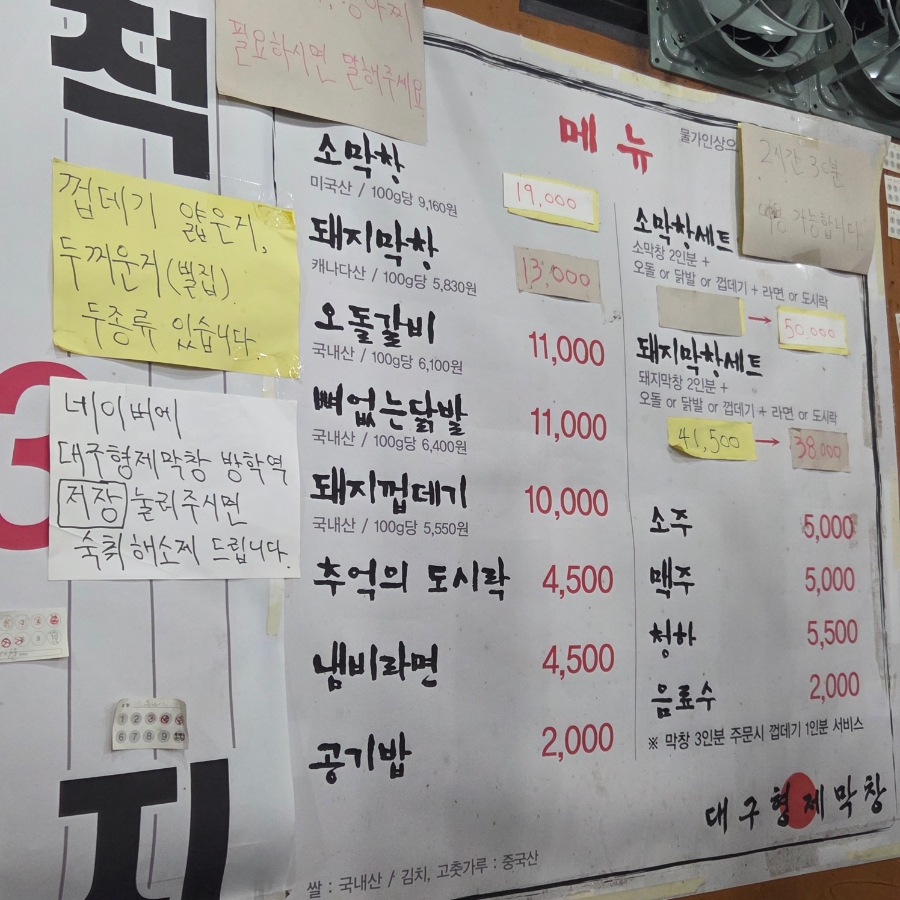 적
필요하시면 말해주세요
껍데기 얇은지,
두꺼운지(벌집).
두종류 있습니다
네이버에
대구형제막창 방학역
저장 눌러주시면
숙취해소제 드립니다.
3
지
메뉴
물가인상으
2시간 30분
가능합니다.
소막창 19,000
미국산 / 100g당 9,160원
돼지막창 13,000
캐나다산 / 100g당 5,830원
오돌갈비 11,000
국내산 / 100g당 6,100원
뼈없는닭발 11,000
국내산 / 100g당 6,400원
돼지껍데기 10,000
국내산 / 100g당 5,550원
추억의 도시락 4,500
냄비라면 4,500
공기밥 2,000
소막창세트
소막창 2인분 +
오돌 or 닭발 or 껍데기 + 라면 or 도시락
→ 50,000
돼지막창세트
돼지막창 2인분 +
오돌 or 닭발 or 껍데기 + 라면 or 도시락
41,500 → 38,000
소주 5,000
맥주 5,000
청하 5,500
음료수 2,000
※ 막창 3인분 주문시 껍데기 1인분 서비스
대구형제막창
쌀 : 국내산 / 김치, 고춧가루 : 중국산